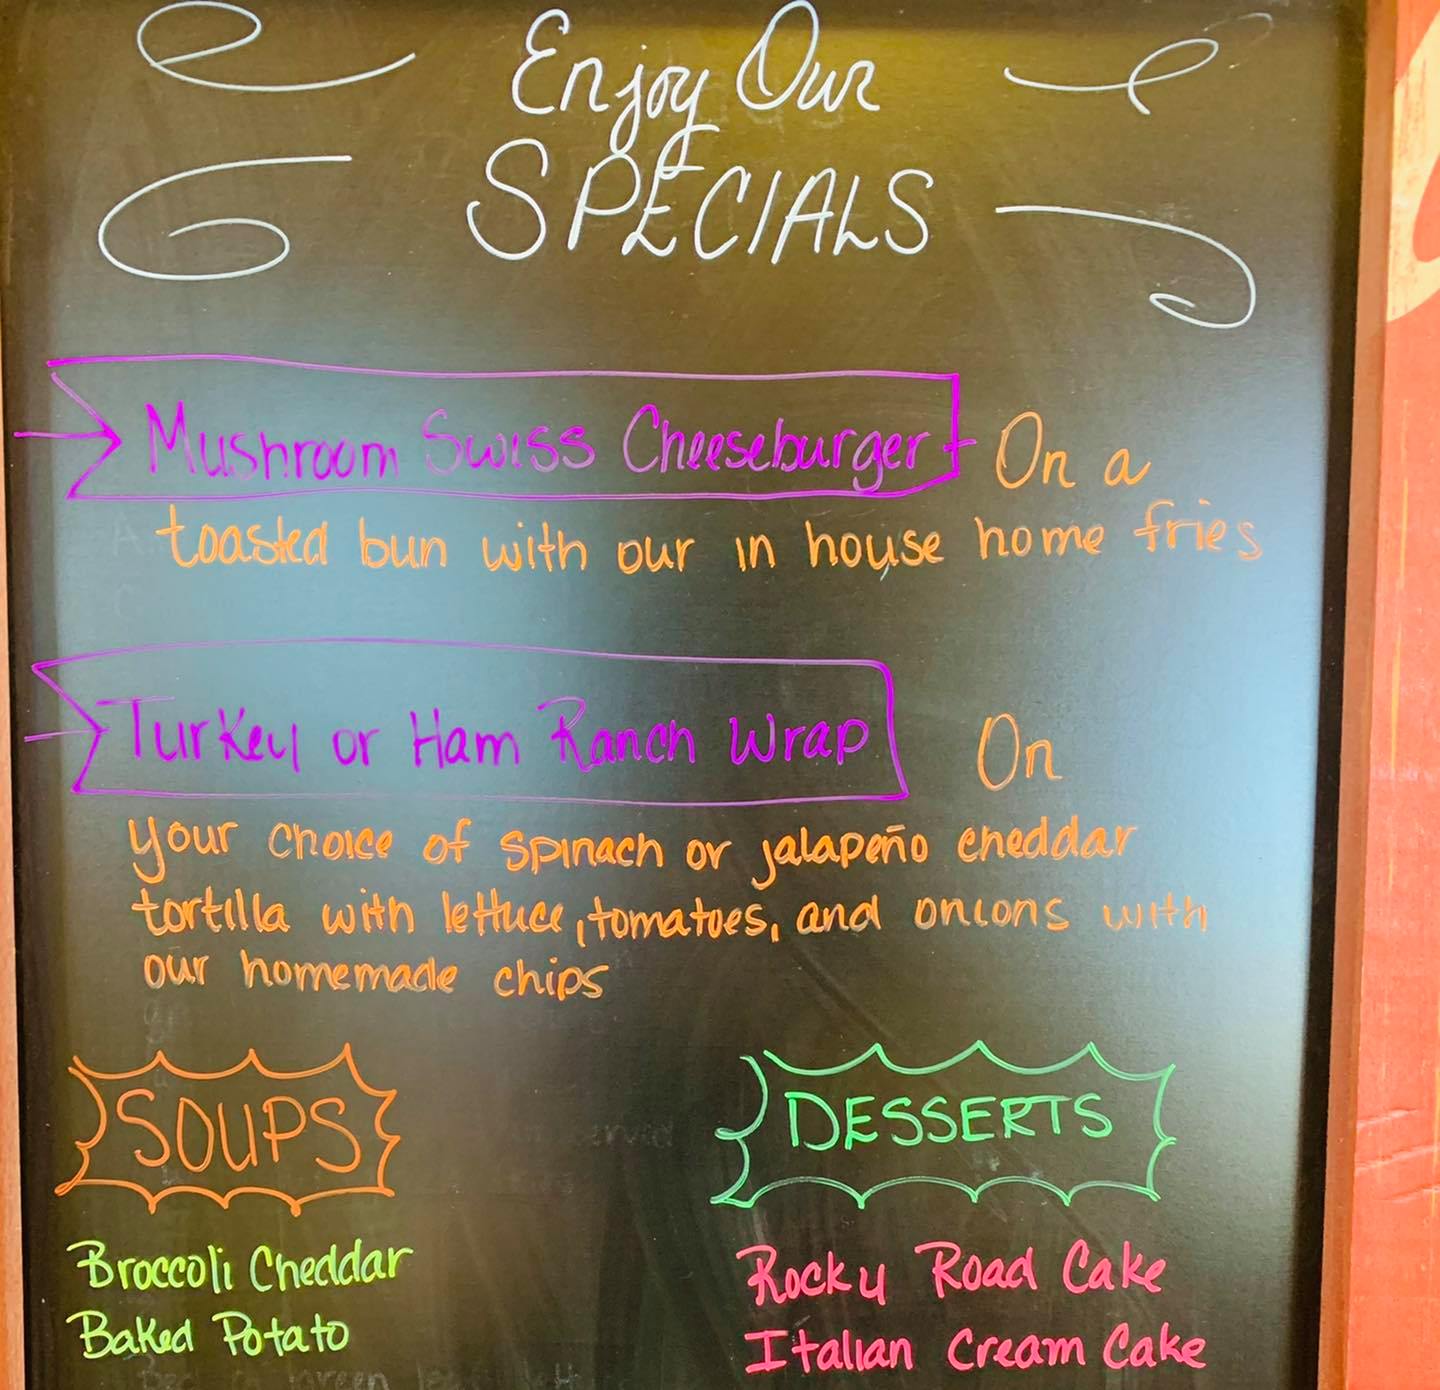 Enjoy Our
SPECIALS
Mushroom Swiss Cheeseburger On a
toasted bun with our in house home fries
Turkey or Ham Ranch Wrap On
your choice of spinach or jalapeño cheddar
tortilla with lettuce, tomatoes, and onions with
our homemade chips
SOUPS
Broccoli Cheddar
Baked Potato
DESSERTS
Rocky Road Cake
Italian Cream Cake